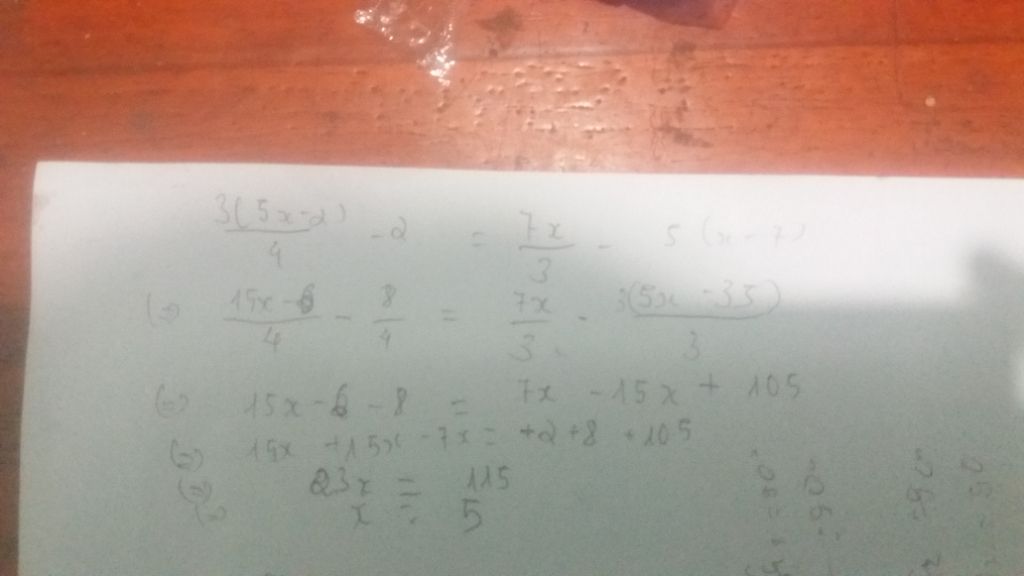 3(5x-2)/4 - 2 = 7x/3 - 5(x-7)
(=) 15x-6/4 - 8/4 = 7x/3 - 3(5x-35)/3
(=) 15x-6-8 = 7x -15x + 105
(=) 15x +15x -7x = +2+8+105
(=) 23x = 115
(=) x = 5